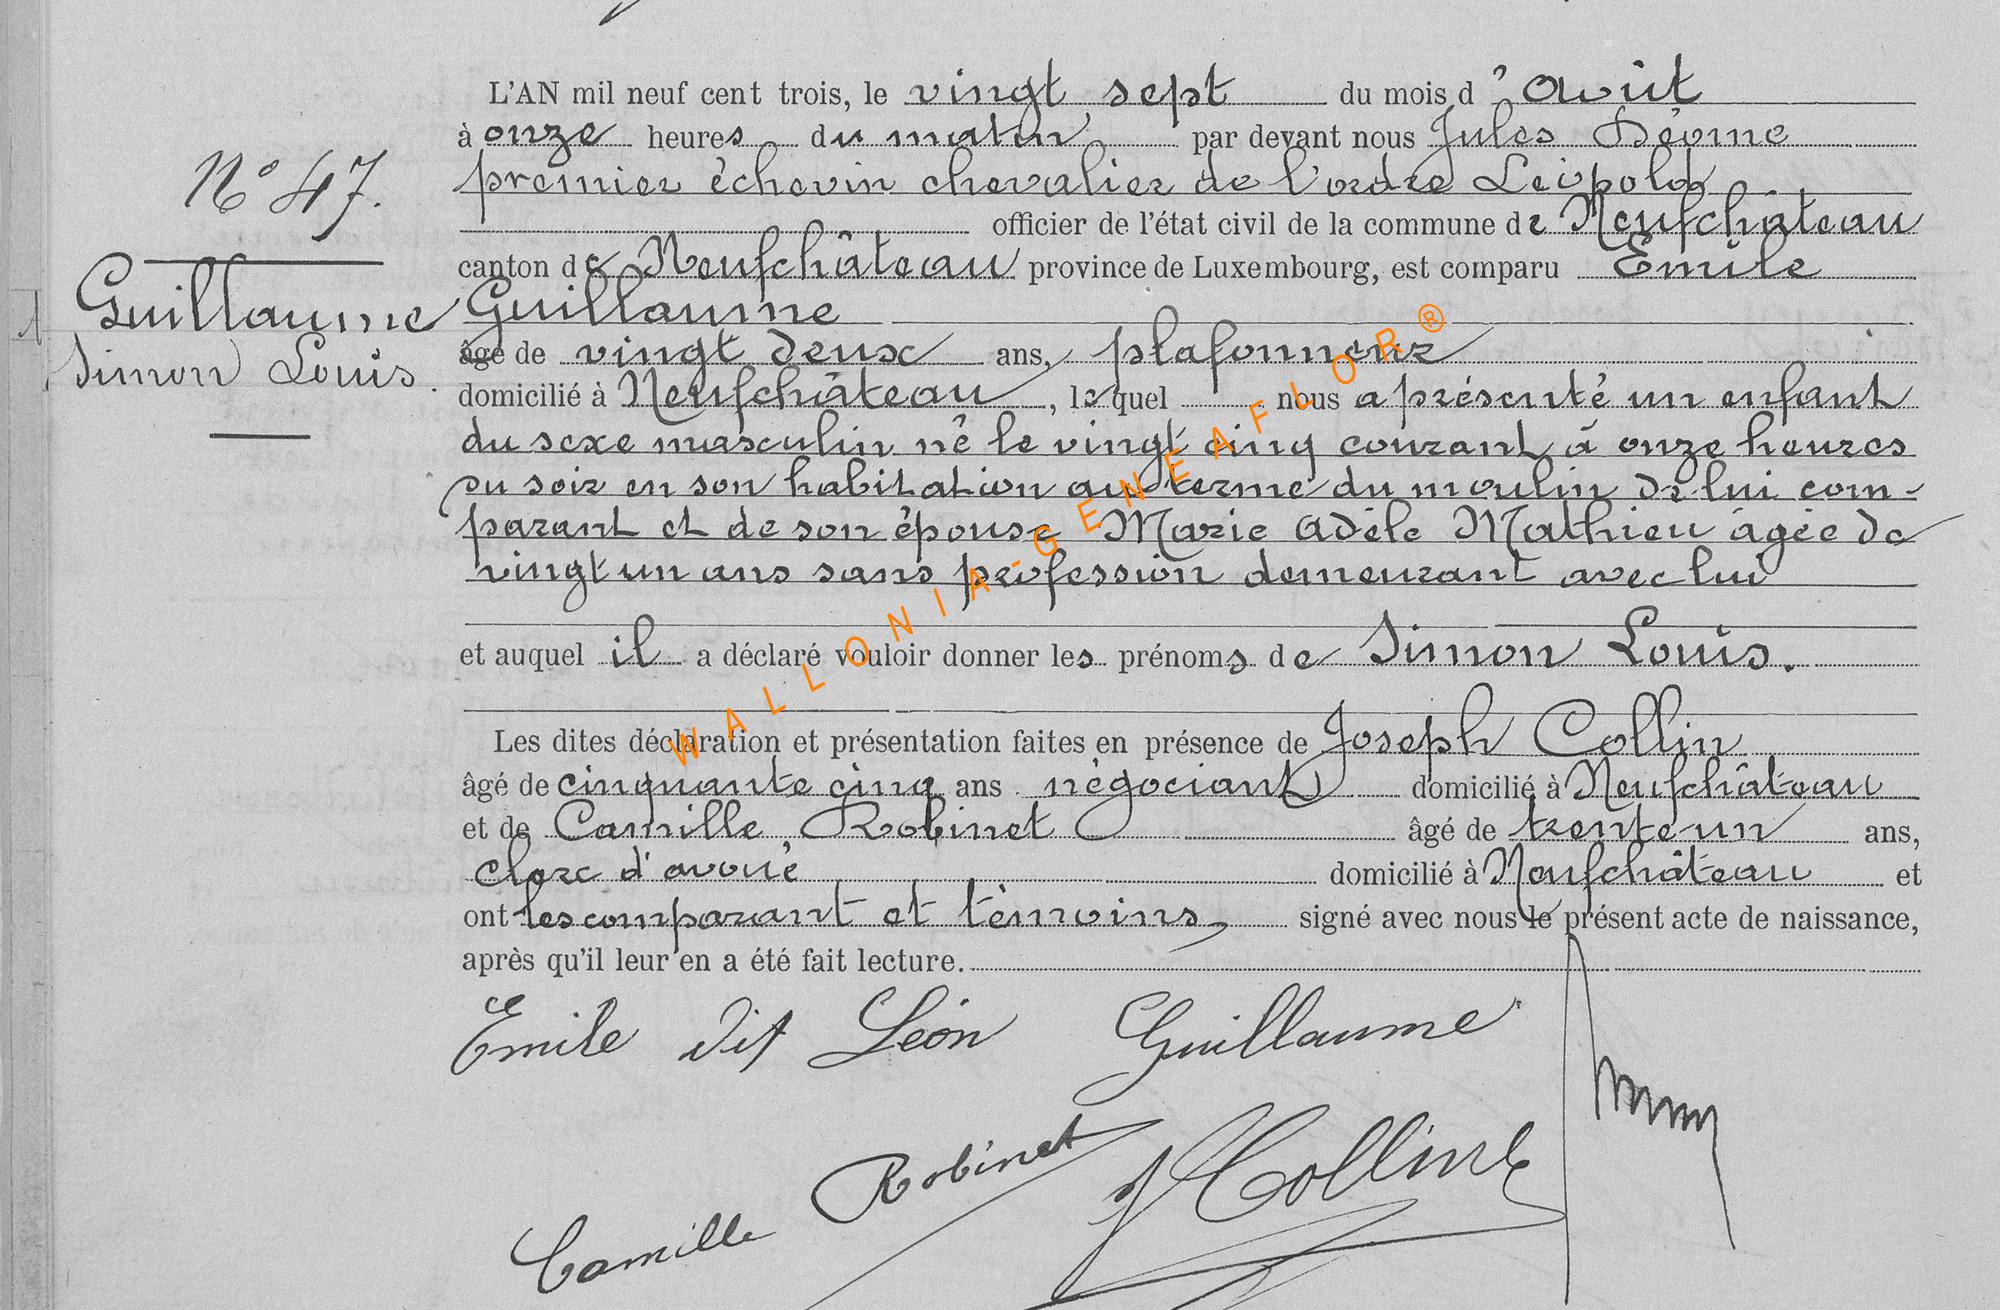 L'AN mil neuf cent trois, le vingt sept du mois d'Août
à onze heures du matin par devant nous Jules
premier échevin chevalier de l'ordre Léopold
N° 47.
officier de l'état civil de la commune de Neufchâteau
canton de Neufchâteau province de Luxembourg, est comparu Emile
Guillaume
Simon Louis.
Guillaume
âgé de vingt deux ans, plafonneur
domicilié à Neufchâteau, lequel nous a présenté un enfant
du sexe masculin né le vingt cinq courant à onze heures
du soir en son habitation au terme du moulin de lui com-
parant et de son épouse Marie Adèle Mathieu âgée de
vingt un ans sans profession demeurant avec lui
et auquel il a déclaré vouloir donner les prénoms de Simon Louis.
Les dites déclaration et présentation faites en présence de Joseph Collin
âgé de cinquante cinq ans négociant domicilié à Neufchâteau
et de Camille Robinet âgé de trente un ans,
clerc d'avoué domicilié à Neufchâteau et
ont les comparant et témoins, signé avec nous le présent acte de naissance,
après qu'il leur en a été fait lecture.
Emile dit Léon Guillaume
Camille Robinet
J Collin
WALLONIA-GENEAFLOR®